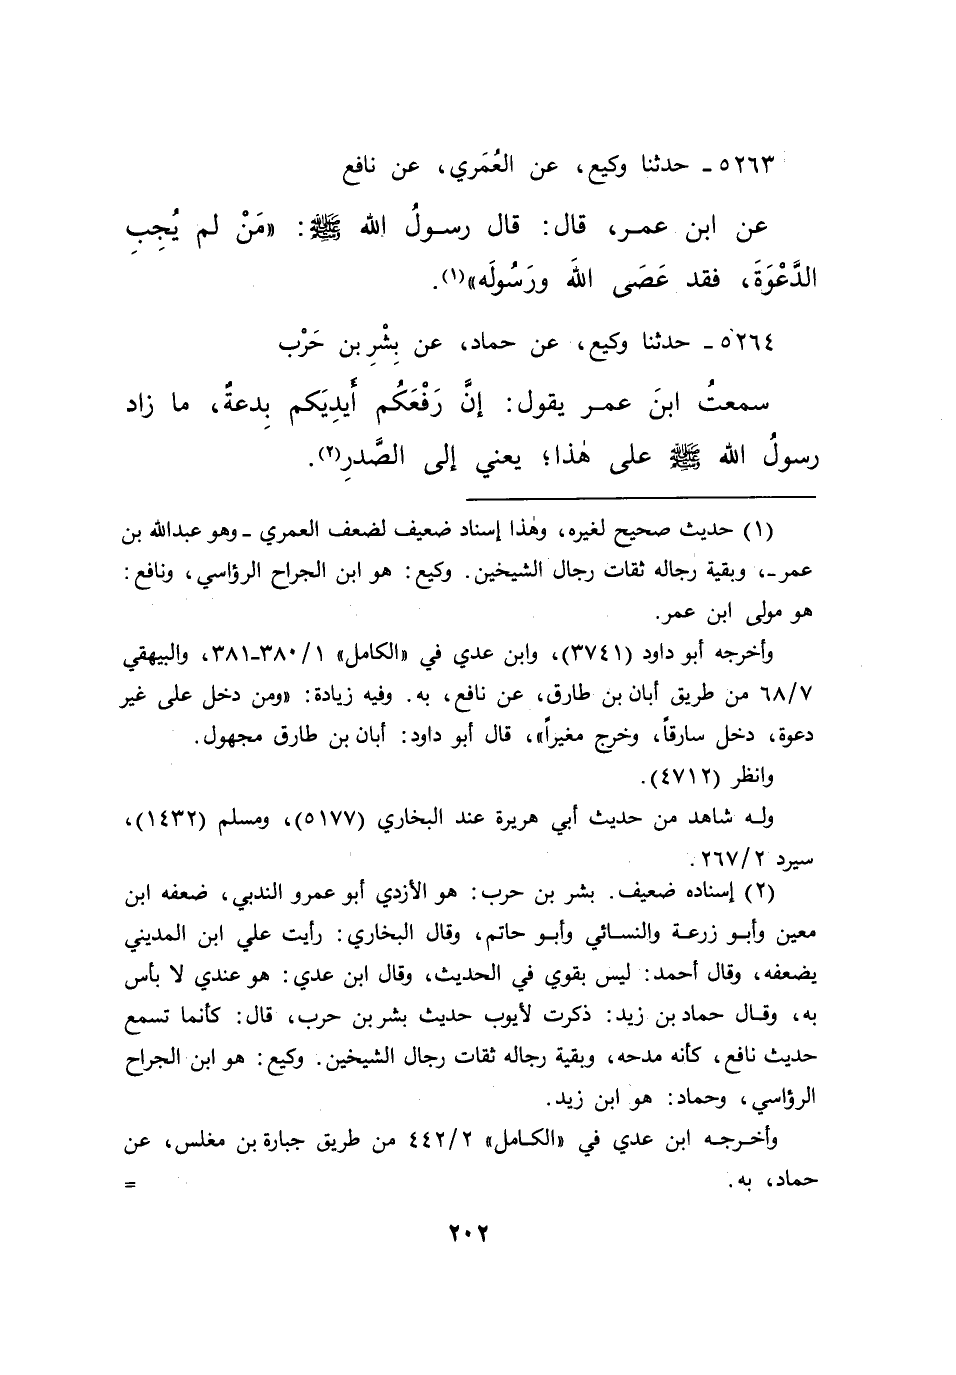 ٥٢٦٣ ـ حدثنا وكيع، عن العُمَري، عن نافع
عن ابن عمـر، قال: قال رسـولُ الله ﷺ: «مَنْ لم يُجِبِ
الدَّعْوَةَ، فقد عَصَى اللهَ ورَسُولَه»(١).
٥٢٦٤ ـ حدثنا وكيع، عن حماد، عن بِشْرِ بن حَرْب
سمعتُ ابنَ عمـر يقول: إنَّ رَفْعَكُم أَيدِيَكم بِدعةٌ، ما زاد
رسولُ الله ﷺ على هٰذا؛ يعني إلى الصَّدرِ(٢).
(١) حديث صحيح لغيره، وهٰذا إسناد ضعيف لضعف العمري ـ وهو عبدالله بن
عمر ـ، وبقية رجاله ثقات رجال الشيخين. وكيع: هو ابن الجراح الرؤاسي، ونافع:
هو مولى ابن عمر.
وأخرجه أبو داود (٣٧٤١)، وابن عدي في «الكامل» ١/ ٣٨٠ـ٣٨١، والبيهقي
٦٨/٧ من طريق أبان بن طارق، عن نافع، به. وفيه زيادة: «ومن دخل على غير
دعوة، دخل سارقاً، وخرج مغيراً»، قال أبو داود: أبان بن طارق مجهول.
وانظر (٤٧١٢).
ولـه شاهد من حديث أبي هريرة عند البخاري (٥١٧٧)، ومسلم (١٤٣٢)،
سيرد ٢٦٧/٢.
(٢) إسناده ضعيف. بشر بن حرب: هو الأزدي أبو عمرو الندبي، ضعفه ابن
معين وأبـو زرعـة والنسائي وأبـو حاتم، وقال البخاري: رأيت علي ابن المديني
يضعفه، وقال أحمد: ليس بقوي في الحديث، وقال ابن عدي: هو عندي لا بأس
به، وقـال حماد بن زيد: ذكرت لأيوب حديث بشر بن حرب، قال: كأنما تسمع
حديث نافع، كأنه مدحه، وبقية رجاله ثقات رجال الشيخين. وكيع: هو ابن الجراح
الرؤاسي، وحماد: هو ابن زيد.
وأخـرجـه ابن عدي في «الكـامل» ٤٤٢/٢ من طريق جبارة بن مغلس، عن
حماد، به. =
٢٠٢